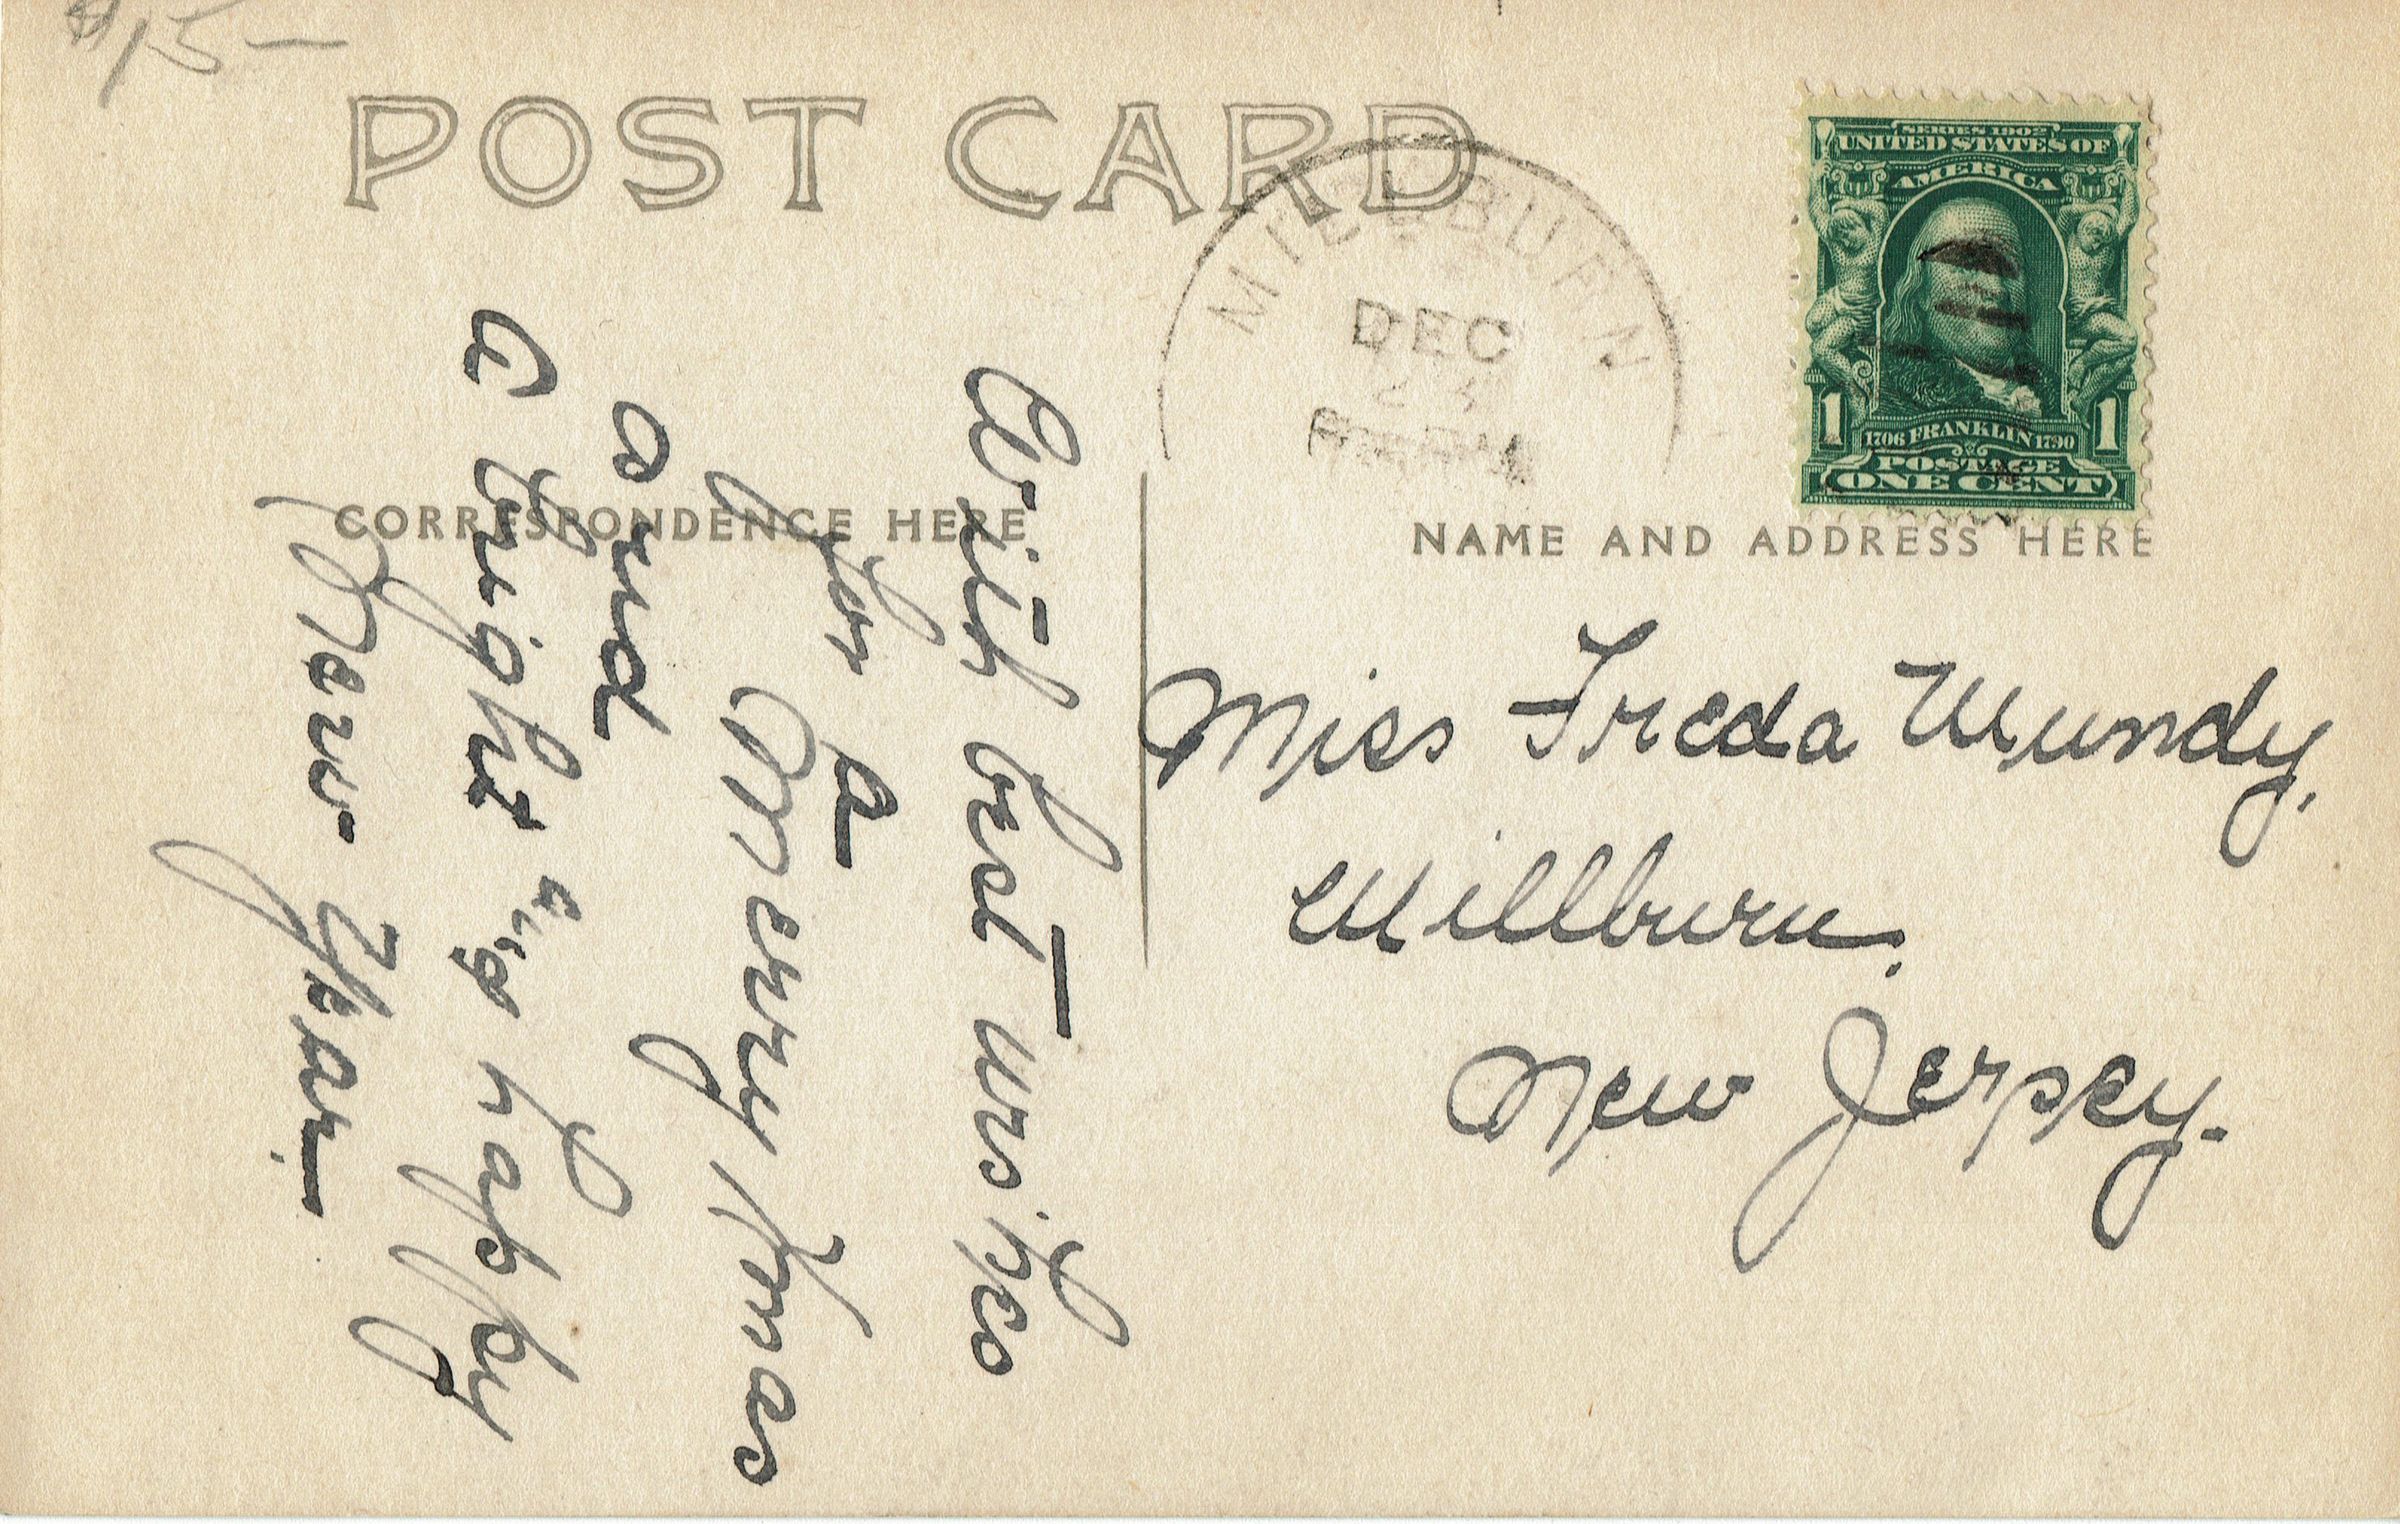 $15—
POST CARD
MILLBURN
DEC
SERIES 1902
UNITED STATES OF
AMERICA
1 1
1706 FRANKLIN 1790
POSTAGE
ONE CENT
CORRESPONDENCE HERE
NAME AND ADDRESS HERE
With best wishes
for a
Merry Xmas
and
a bright
happy
New Year.
Miss Freda Mundy,
Millburn.
New Jersey.